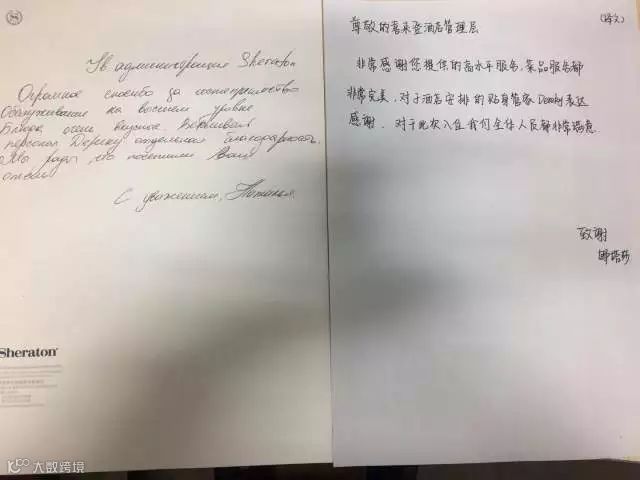 Ув администрация Sheraton
Огромное спасибо за гостеприимство
Обслуживание на высшем уровне
Блюда очень вкусные. Вежливый
персонал Дерику отдельная благодарность.
Мы рады, что посетили Ваш
отель
С уважением, Наталья
Sheraton
(译文)
尊敬的喜来登酒店管理层
非常感谢您提供的高水平服务,菜品服务都
非常完美,对于酒店安排的贴身管家 表达
感谢,对于此次入住我们全体人员都非常满意.
致谢
娜塔莎
大数跨境